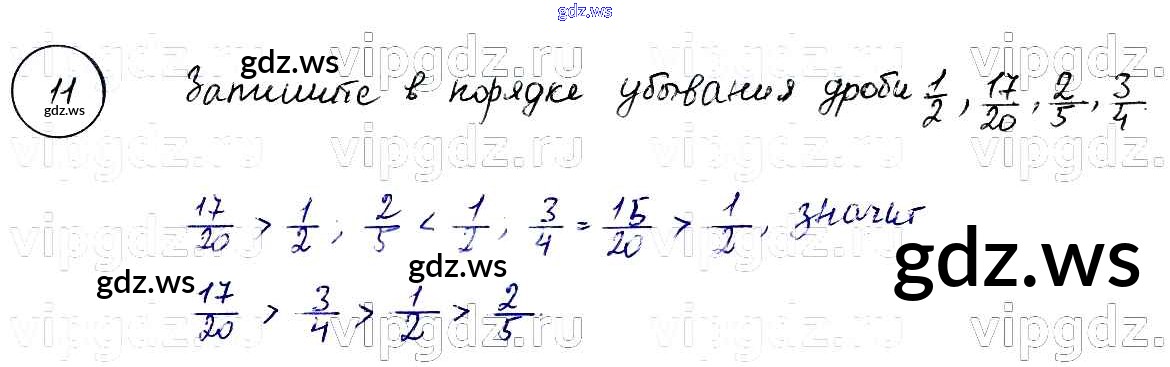 gdz.ws
11 Запишите в порядке убывания дроби 1/2, 17/20, 2/5, 3/4.
gdz.ws
gdz.ws
vipgdz.ru vipgdz.ru vipgdz.ru vipgdz.ru
vipgdz.ru vipgdz.ru vipgdz.ru vipgdz.ru
17/20 > 1/2; 2/5 < 1/2; 3/4 = 15/20 > 1/2, значит
vipgdz.ru vipgdz.ru vipgdz.ru vipgdz.ru
gdz.ws gdz.ws gdz.ws
17/20 > 3/4 > 1/2 > 2/5.
vipgdz.ru vipgdz.ru vipgdz.ru vipgdz.ru